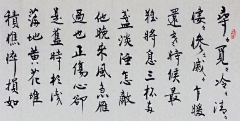 尋、覓、冷、清、
悽、慘、戚、乍暖
還寒時候最
難將息三杯兩
盞淡酒怎敵
他晚來風急雁
過也正傷心卻
是舊時相識
滿地黃花堆
積憔悴損如